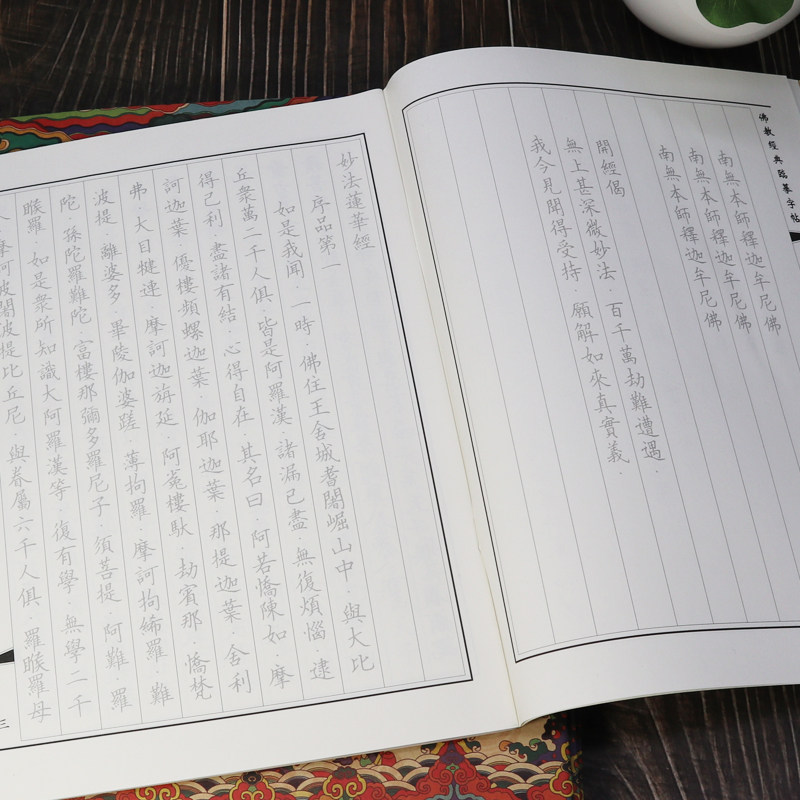 佛教經典臨摹字帖
南無本師釋迦牟尼佛
南無本師釋迦牟尼佛
南無本師釋迦牟尼佛
開經偈
無上甚深微妙法．百千萬劫難遭遇．
我今見聞得受持．願解如來真實義．
妙法蓮華經
序品第一
如是我闻．一時．佛住王舍城耆闍崛山中．與大比
丘衆萬二千人俱．皆是阿羅漢．諸漏已盡．無復煩惱．逮
得己利．盡諸有結．心得自在．其名曰．阿若憍陳如．摩
訶迦葉．優樓頻螺迦葉．伽耶迦葉．那提迦葉．舍利
弗．大目犍連．摩訶迦旃延．阿㝹樓馱．劫賓那．憍梵
波提．離婆多．畢陵伽婆蹉．薄拘羅．摩訶拘絺羅．難
陀．孫陀羅難陀．富樓那彌多羅尼子．須菩提．阿難．羅
睺羅．如是衆所知識大阿羅漢等．復有學．無學二千
人．摩訶波闍波提比丘尼．與眷屬六千人俱．羅睺羅母
三